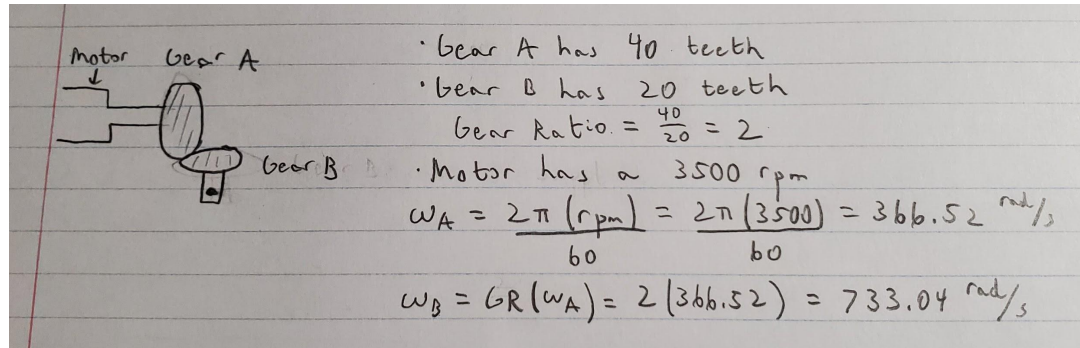 Motor Gear A
Gear B
· Gear A has 40 teeth
· Gear B has 20 teeth
Gear Ratio = 40/20 = 2
· Motor has a 3500 rpm
ωA = 2π(rpm)/60 = 2π(3500)/60 = 366.52 rad/s
ωB = GR(ωA) = 2(366.52) = 733.04 rad/s